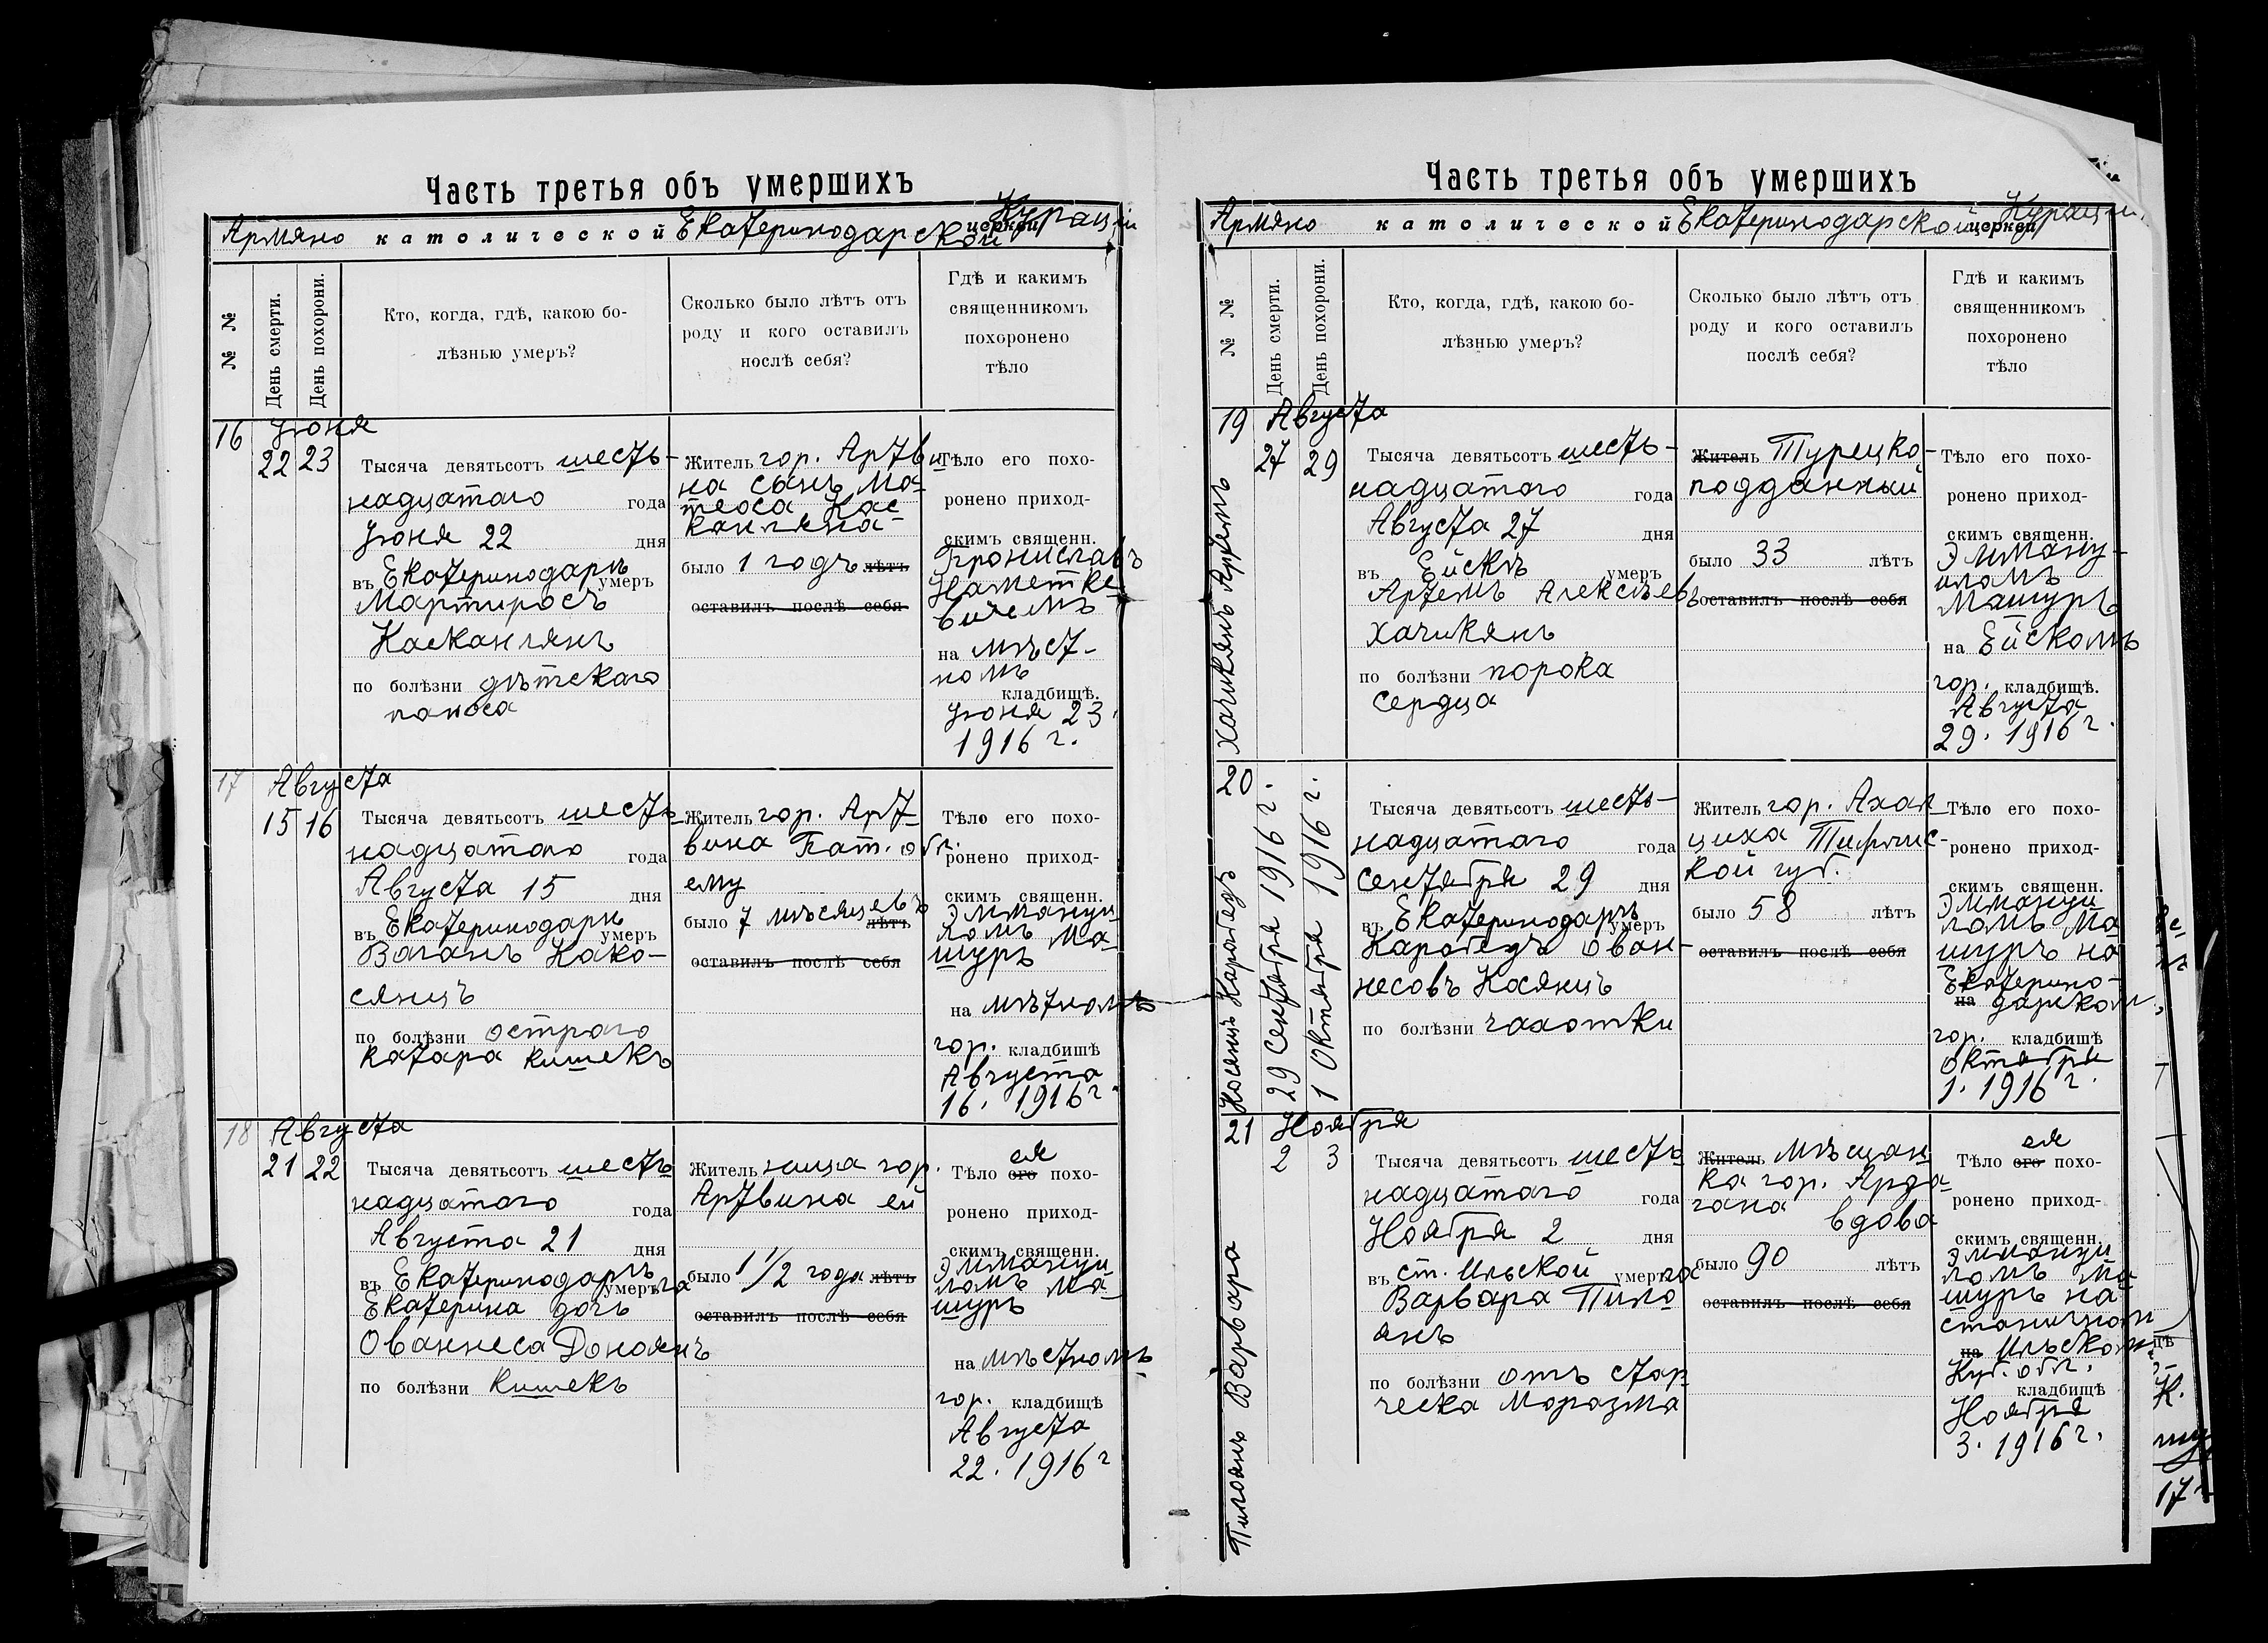 Часть третья объ умершихъ
Армяно католической Екатеринодарской церкви Курацiи
№ №
День смерти.
День похорони.
Кто, когда, гдѣ, какою бо-
лѣзнью умеръ?
Сколько было лѣтъ отъ
роду и кого оставилъ
послѣ себя?
Гдѣ и какимъ
священникомъ
похоронено
тѣло
16
Іюня
22 23
Тысяча девятьсотъ шесть-
надцатаго года
Іюня 22 дня
въ Екатеринодарѣ умеръ
Мартиросъ
Касканлянъ
по болѣзни дѣтскаго
поноса
Житель гор. Артви
на сынъ Ма-
теоса Кас
канляна-
было 1 годъ лѣтъ
оставилъ послѣ себя
Тѣло его похо-
ронено приход-
скимъ священн.
Брониславъ
Наметке
вичемъ
на мѣст-
номъ
кладбищѣ.
Іюня 23.
1916 г.
17
Августа
15 16
Тысяча девятьсотъ шесть-
надцатаго года
Августа 15 дня
въ Екатеринодарѣ умеръ
Ваганъ Како-
сянцъ
по болѣзни остраго
катара кишекъ
Житель гор. Арт-
вина Бат. обл.
ему
было 7 мѣсяцевъ лѣтъ
оставилъ послѣ себя
Тѣло его похо-
ронено приход-
скимъ священн.
Эммануи
ломъ Ма-
шуръ
на мѣтномъ
гор. кладбищѣ
Августа
16. 1916 г.
18
Августа
21 22
Тысяча девятьсотъ шесть
надцатаго года
Августа 21 дня
въ Екатеринодарѣ умеръла
Екатерина дочь
Ованнеса Доноянъ
по болѣзни кишекъ
Житель ница гор.
Артвина ей
было 1 1/2 года лѣтъ
оставилъ послѣ себя
Тѣло его ея похо-
ронено приход-
скимъ священн.
Эммануи
ломъ Ма-
шуръ
на мѣстномъ
гор. кладбищѣ
Августа
22. 1916 г
Часть третья объ умершихъ
Армяно католической Екатеринодарской церкви Курацiи.
№ №
День смерти.
День похорони.
Кто, когда, гдѣ, какою бо-
лѣзнью умеръ?
Сколько было лѣтъ отъ
роду и кого оставилъ
послѣ себя?
Гдѣ и какимъ
священникомъ
похоронено
тѣло
19
Августа
27 29
Хачикянъ Артемъ
Тысяча девятьсотъ шесть-
надцатаго года
Августа 27 дня
въ Ейскѣ умеръ
Артемъ Алексѣевъ
Хачикянъ
по болѣзни порока
сердца
Житель Турецко-
подданный
было 33 лѣтъ
оставилъ послѣ себя
Тѣло его похо-
ронено приход-
скимъ священн.
Эмману-
иломъ
Машуръ
на Ейскомъ
гор. кладбищѣ.
Августа
29. 1916 г.
20
29 Сентября 1916 г.
1 Октября 1916 г.
Косянцъ Карапедъ
Тысяча девятьсотъ шесть-
надцатаго года
Сентября 29 дня
въ Екатеринодарѣ умеръ
Карапедъ Ован-
несовъ Косянцъ
по болѣзни чахотки
Житель гор. Ахал
циха Тифлис-
кой губ.
было 58 лѣтъ
оставилъ послѣ себя
Тѣло его похо-
ронено приход-
скимъ священн.
Эммануи
ломъ Ма
шуръ на
Екатерино-
на дарском.
гор. кладбищѣ
Октября
1. 1916 г.
21
Ноября
2 3
Пилоянъ Варвара
Тысяча девятьсотъ шесть
надцатаго года
Ноября 2 дня
въ ст. Ильской умеръла
Варвара Пило
янъ
по болѣзни отъ стар-
ческа Маразма
Житель мѣщан
ка гор. Арда-
гана вдова
было 90 лѣтъ
оставилъ послѣ себя
Тѣло его ея похо-
ронено приход-
скимъ священн.
Эммануи
ломъ Ма
шуръ на
станичном
на Ильском
Куб. обл.
кладбищѣ
Ноября
3. 1916 г.
К.
17 г